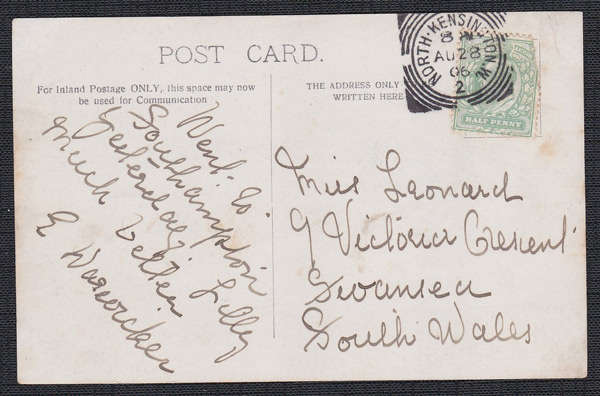 POST CARD.
For Inland Postage ONLY, this space may now
be used for Communication
THE ADDRESS ONLY
WRITTEN HERE
NORTH·KENSINGTON.W.
8 PM
AU 28
06
2
HALF PENNY
Went to
Southampton
yesterday Lilly
much better
E Warwicker
Miss Leonard
9 Victoria Cresent
Swansea
South Wales